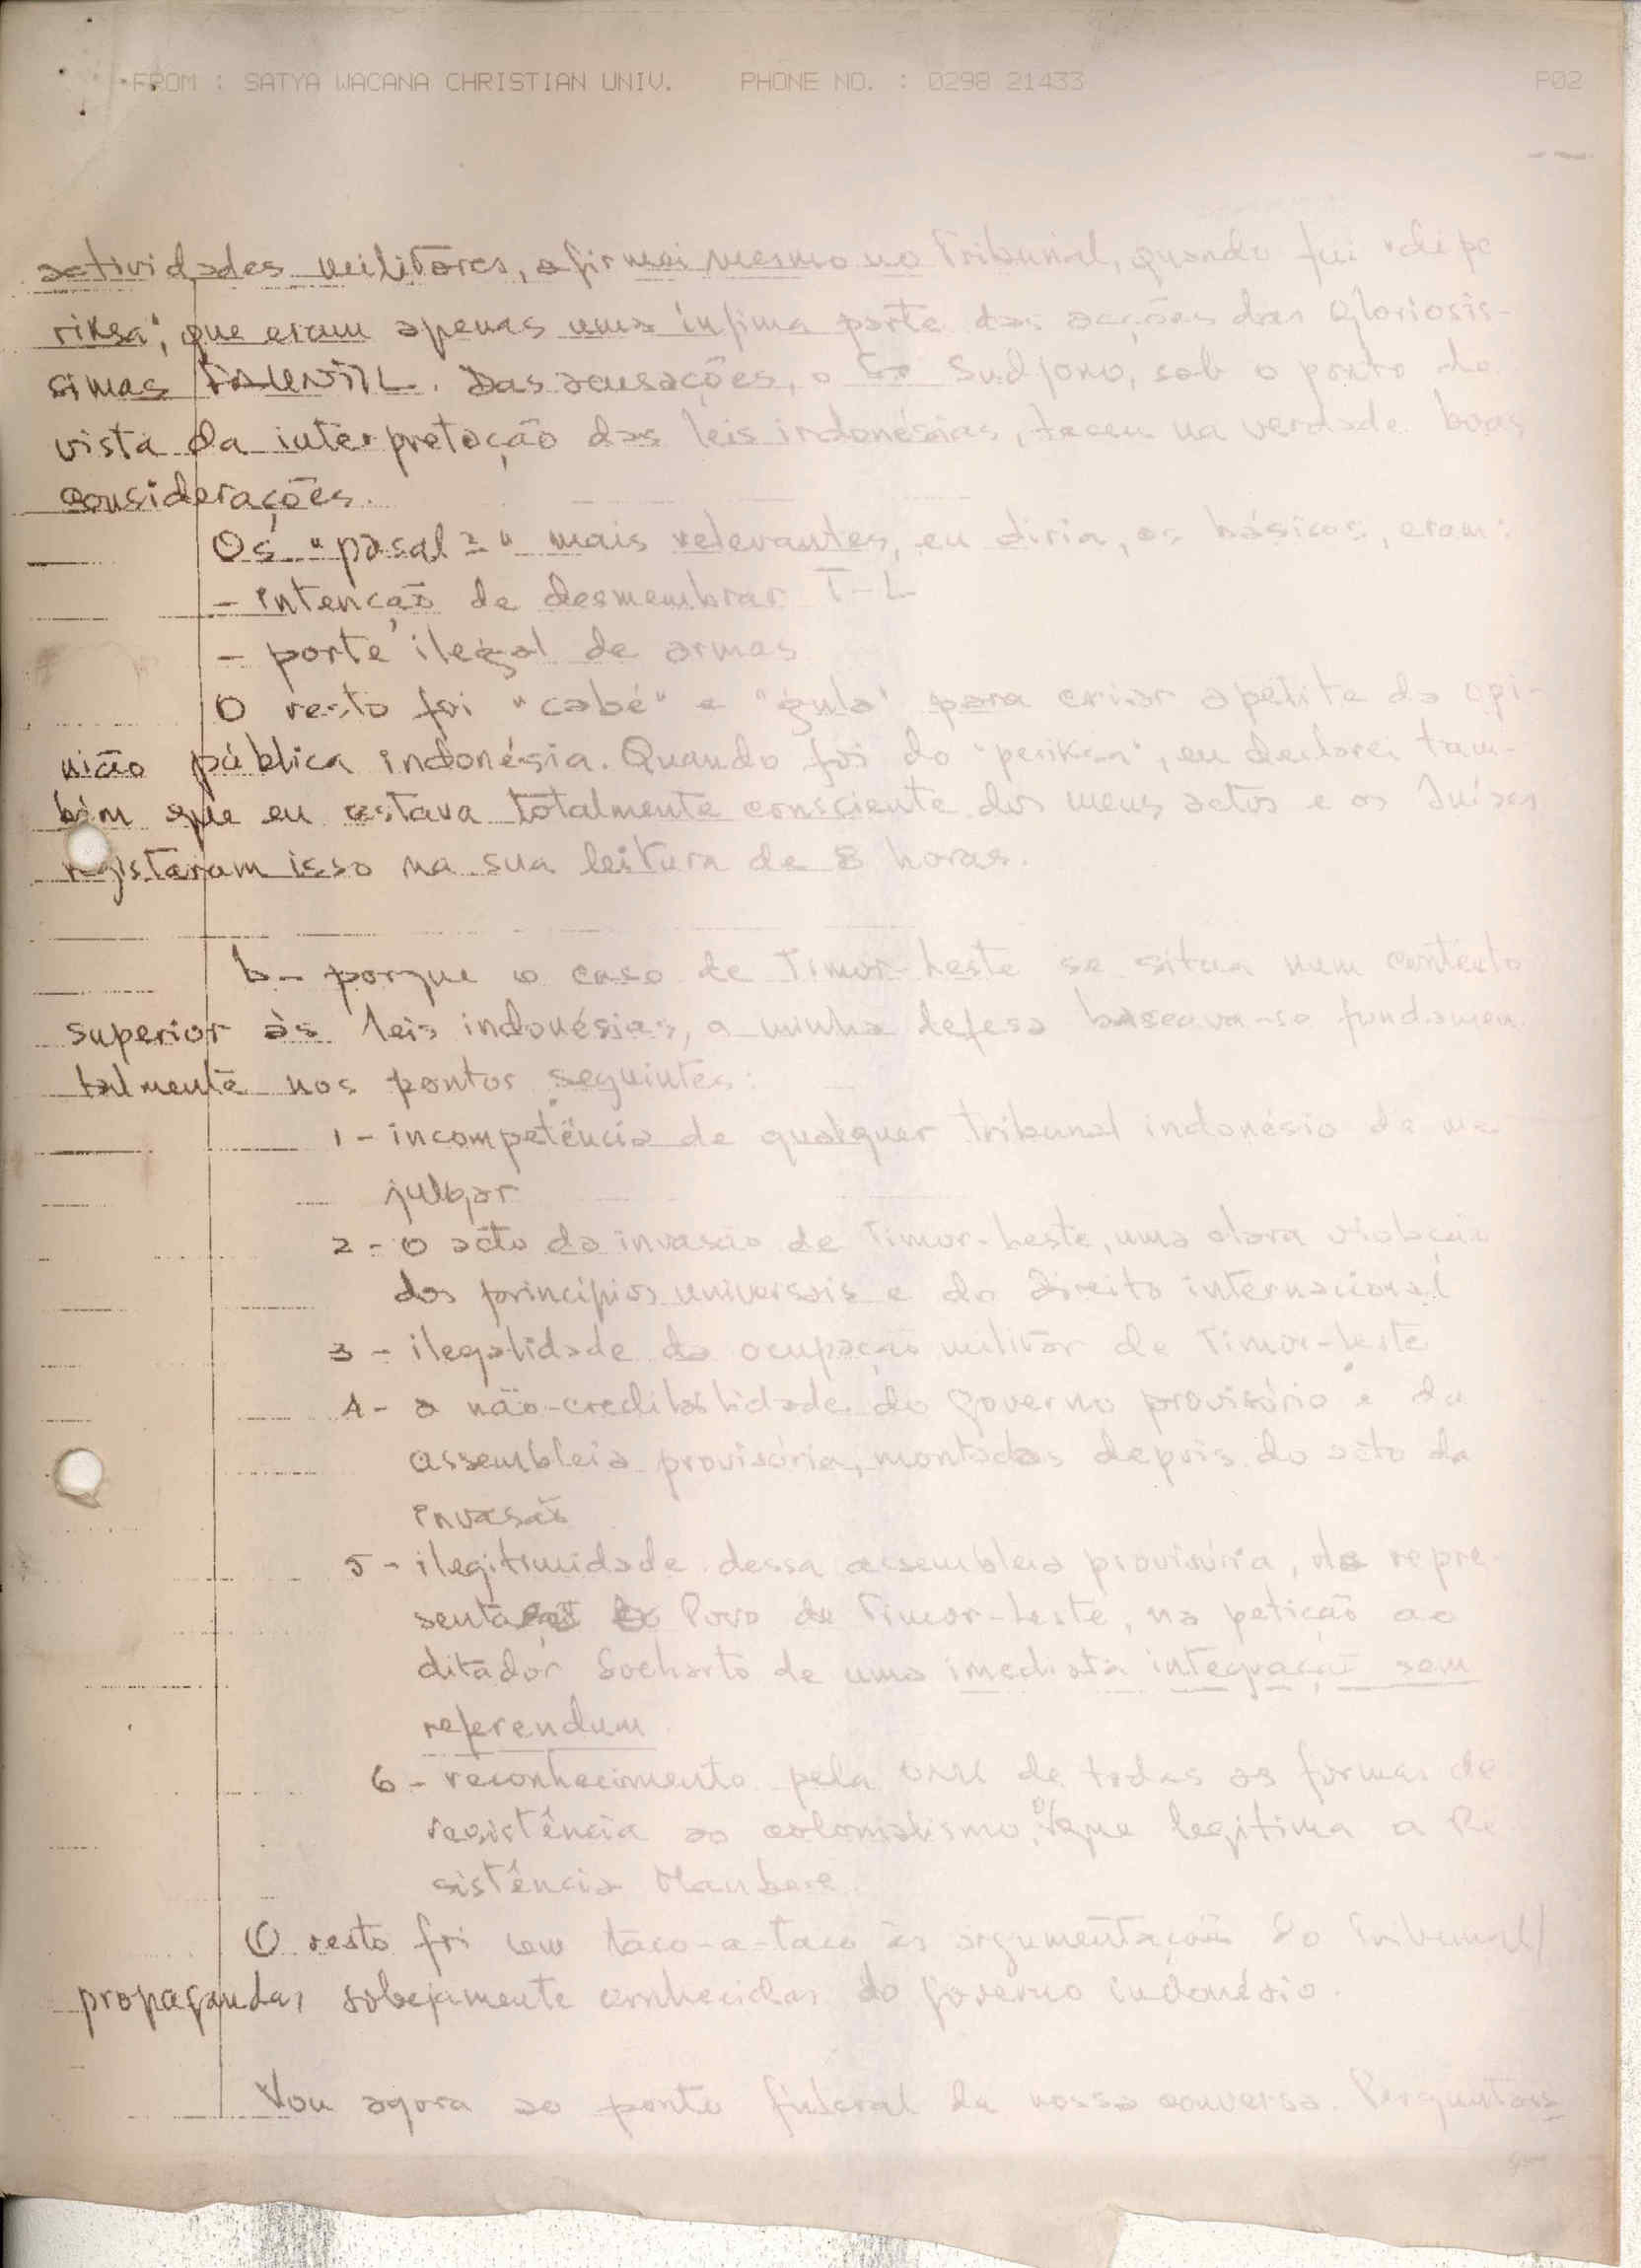 FROM : SATYA WACANA CHRISTIAN UNIV. PHONE NO. : 0298 21433 P02
actividades militares, afirmei mesmo no Tribunal, quando fui "dipe
riksa", que eram apenas uma ínfima parte das acções das Gloriosís-
simas FALINTIL. Das acusações, o Sudjono, sob o ponto de
vista da interpretação das leis indonésias, teceu na verdade boas
considerações.
Os "pasal2" mais relevantes, eu diria, os básicos, eram:
- intenção de desmembrar T-L
- porte ilegal de armas
O resto foi "cabé" e "gula" para criar apetite da opi-
nião pública indonésia. Quando foi do "periksa", eu declarei tam-
bém que eu estava totalmente consciente dos meus actos e os Juízes
registaram isso na sua leitura de 8 horas.
b- porque o caso de Timor-Leste se situa num contexto
superior às leis indonésias, a minha defesa baseava-se fundamen
talmente nos pontos seguintes:
1- incompetência de qualquer tribunal indonésio de me
julgar
2- o acto da invasão de Timor-Leste, uma clara violação
dos princípios universais e do direito internacional
3- ilegalidade da ocupação militar de Timor-Leste
4- a não-credibilidade do governo provisório e da
assembleia provisória, montadas depois do acto da
invasão
5- ilegitimidade dessa assembleia provisória, de repre-
sentação do Povo de Timor-Leste, na petição ao
ditador Soeharto de uma imediata integração sem
referendum
6- reconhecimento pela ONU de todas as formas de
resistência ao colonialismo, o que legitima a Re
sistência Maubere.
O resto foi um taco-a-taco às argumentações do Tribunal/
propagandas sobejamente conhecidas do governo indonésio.
Vou agora ao ponto fulcral da nossa conversa. Perguntais